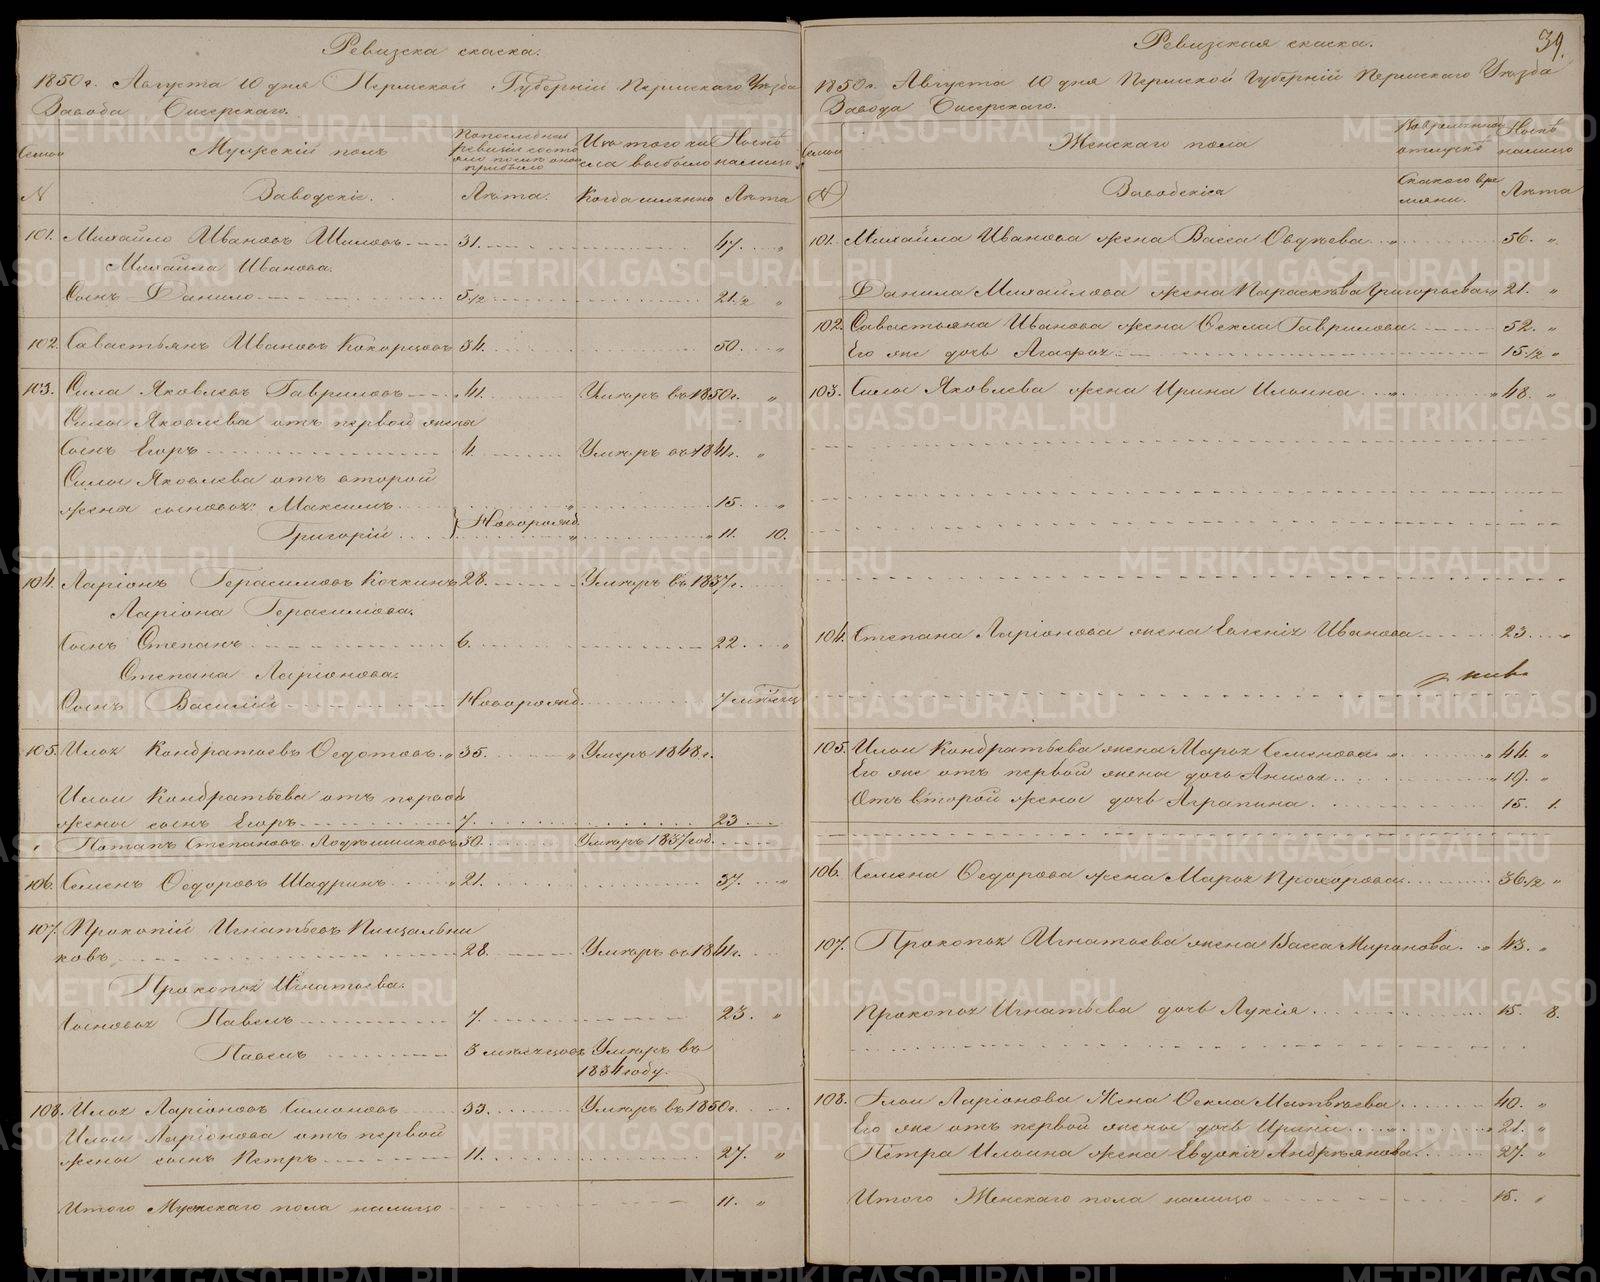 Ревизска скаска.
1850 г. Августа 10 дня Пермской Губерніи Пермскаго Уѣзда
Завода Бисерскаго.
Семьи
Мужескій полъ
По последней
ревизіи состо
яло после оной
прибыло
Изъ того чи
сла выбыло
Нынѣ
налицо
N
Заводскіе.
Лѣта.
Когда именно
Лѣта
101. Михайло Ивановъ Шиловъ 31. 47. "
Михаила Иванова.
Сынъ Данило 5 1/2 21 1/2 "
102. Савастьянъ Ивановъ Кокорцовъ 34. 50. "
103. Сила Яковлевъ Гавриловъ 41. Умеръ въ 1850 г. "
Силы Яковлева отъ первой жены
Сынъ Егоръ 4. Умеръ въ 1841 г. "
Силы Яковлева отъ второй
жены сыновья Максимъ 15. "
Новорожд.
Григорій 11. 10.
104. Ларіонъ Герасимовъ Кочкинъ 28. Умеръ въ 1837 г.
Ларіона Герасимова.
Сынъ Степанъ 6. 22. "
Степана Ларіонова.
Сынъ Василій Новорожд. 7 мѣсяц
105. Илья Кондратьевъ Федотовъ 35. " Умеръ 1848 г.
Ильи Кондратьева отъ первой
жены сынъ Егоръ 7. 23
Потапъ Степановъ 30. Умеръ 1837 год.
106. Семенъ Федоровъ Шадринъ " 21. 37. "
107. Прокопій Игнатьевъ Пищальни
ковъ 28. Умеръ въ 1841 г.
Прокопья Игнатьева.
Сыновья Павелъ 7. 23. "
Павелъ 3 мѣсяцовъ Умеръ въ
1834 году.
108. Илья Ларіоновъ Симоновъ 33. Умеръ въ 1850 г.
Ильи Ларіонова отъ первой
жены сынъ Петръ 11. 27. "
Итого Мужескаго пола налицо 11. "
Ревизская скаска.
39.
1850 г. Августа 10 дня Пермской Губерніи Пермскаго Уѣзда
Завода Бисерскаго.
Семьи
Женскаго пола
Во временной
отлучкѣ
Нынѣ
налицо
N
Заводскія
Съ какого вре
мяни.
Лѣта
101. Михайла Иванова жена Васса Овдѣева " 56. "
Данила Михайлова жена Параскѣва Григорьева " 21. "
102. Савастьяна Иванова жена Фекла Гаврилова 52. "
Его же дочь Агафья 15 1/2 "
103. Силы Яковлева жена Ирина Ильина " " 48. "
104. Степана Ларіонова жена Евгенія Иванова 23. "
105. Ильи Кондратьева жена Марья Семенова " " 44. "
Его же отъ первой жены дочь Анисья " 19. "
Отъ второй жены дочь Аграпина 15. 1.
106. Семена Федорова жена Марья Прохорова 36 1/2 "
107. Прокопья Игнатьева жена Васса Миронова " 43. "
Прокопья Игнатьева дочь Лукія 15. 8.
108. Ильи Ларіонова Жена Фекла Матвѣева 40. "
Его же отъ первой жены дочь Ирина " " 21. "
Петра Ильина жена Евдокія Андрѣянова 27. "
Итого Женскаго пола налицо 15. "
METRIKI.GASO-URAL.RU